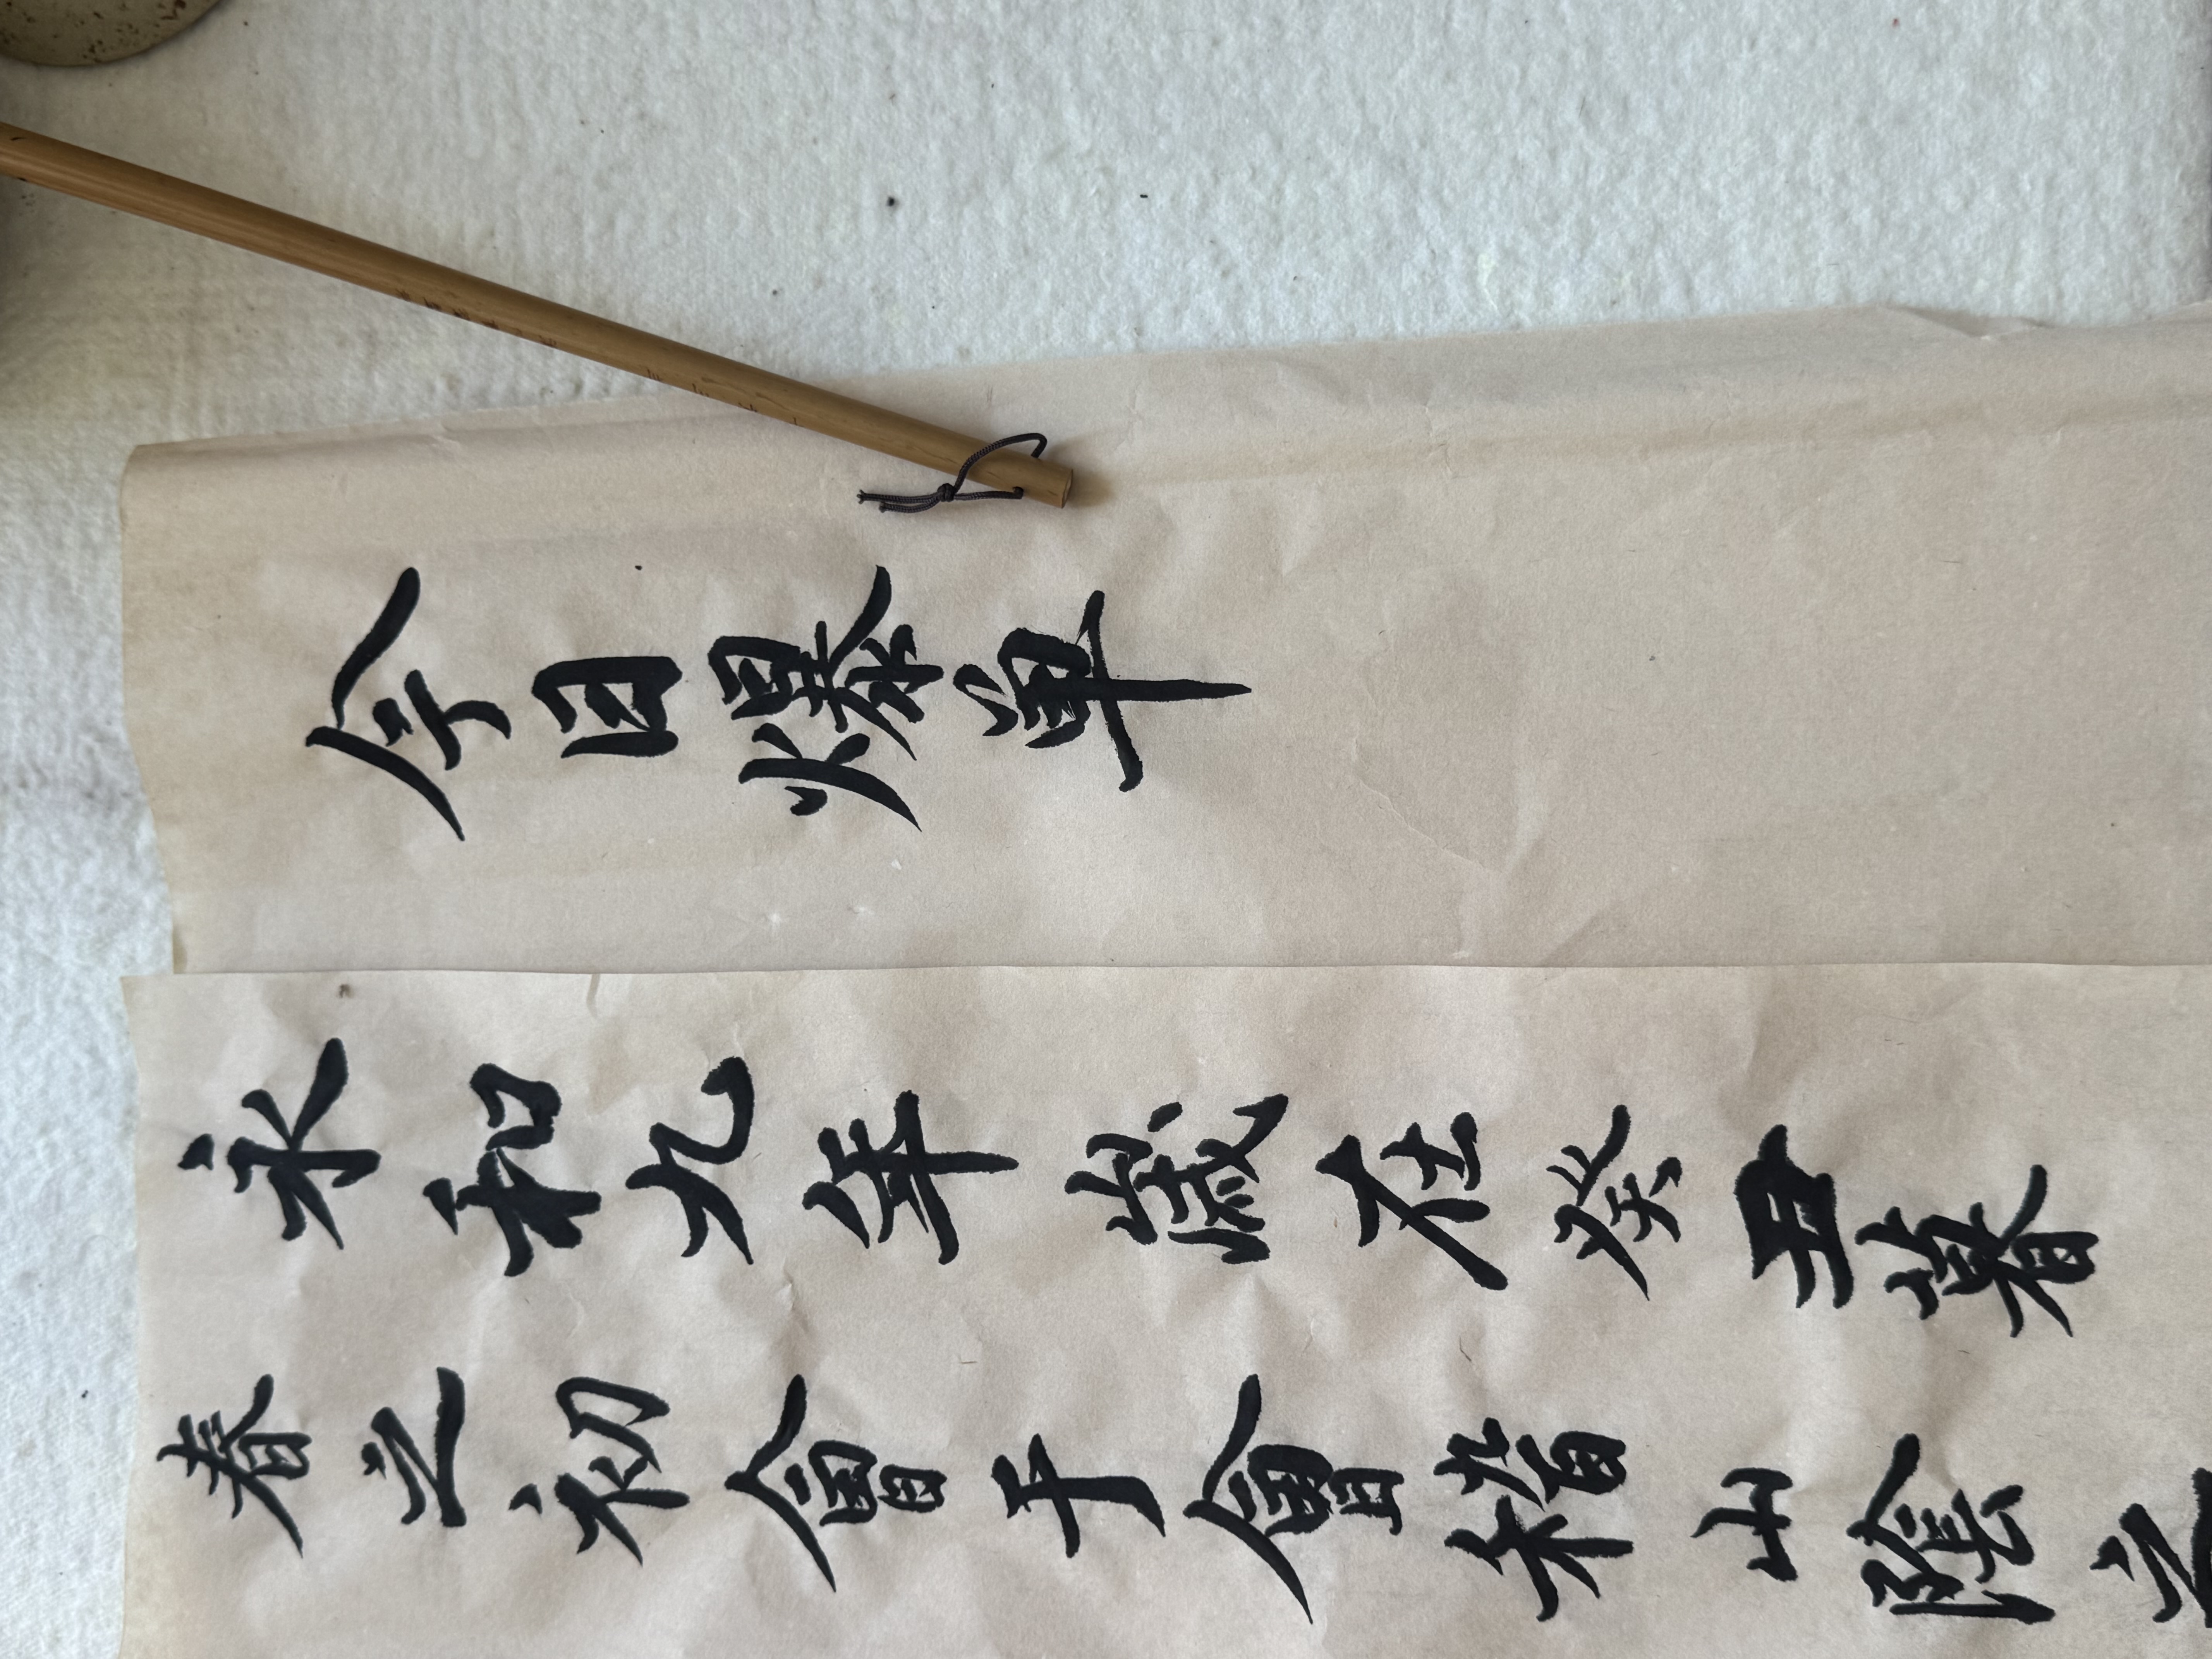 今日爆單
永和九年歲在癸丑暮
春之初會于會稽山陰之